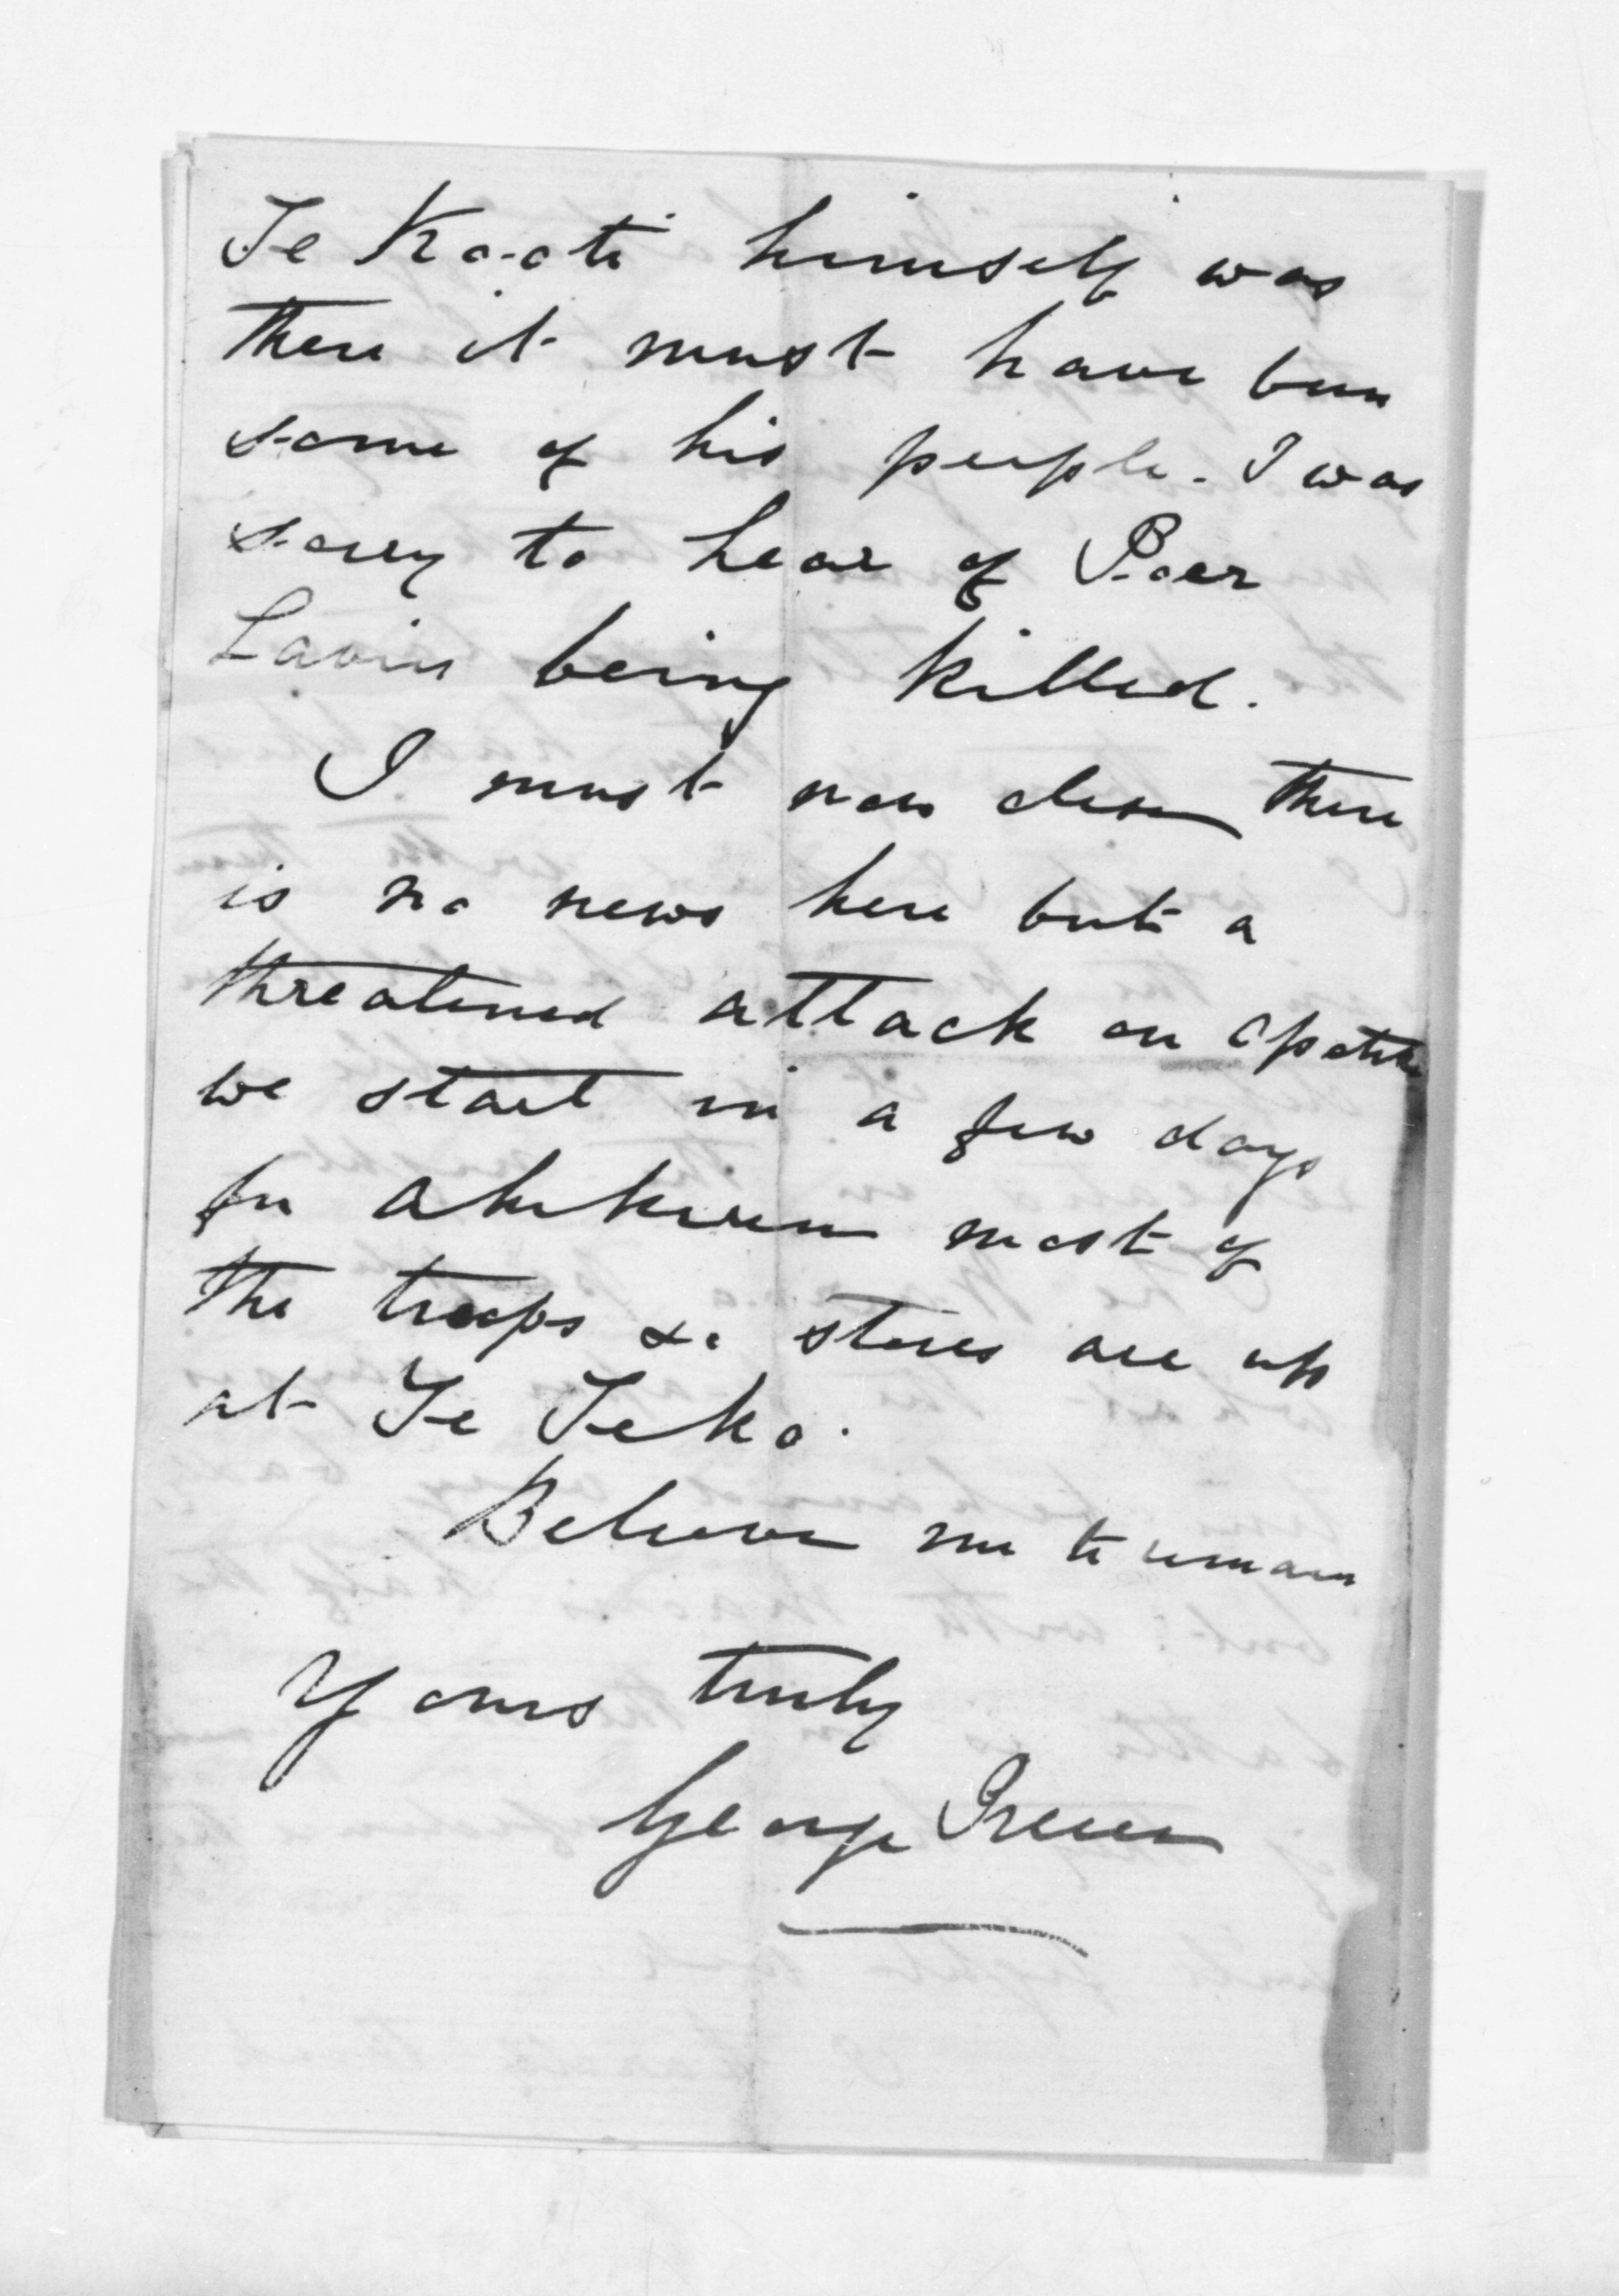 Te Kooti himself was
there it must have been
some of his people. I was
sorry to hear of Poor
Lavin being killed.
I must now close there
is no news here but a
threatened attack on Opotiki
we start in a few days
for Ahikereru most of
the troops &c stores are up
at Te Teko.
Believe me to remain
Yours truly
George Preece